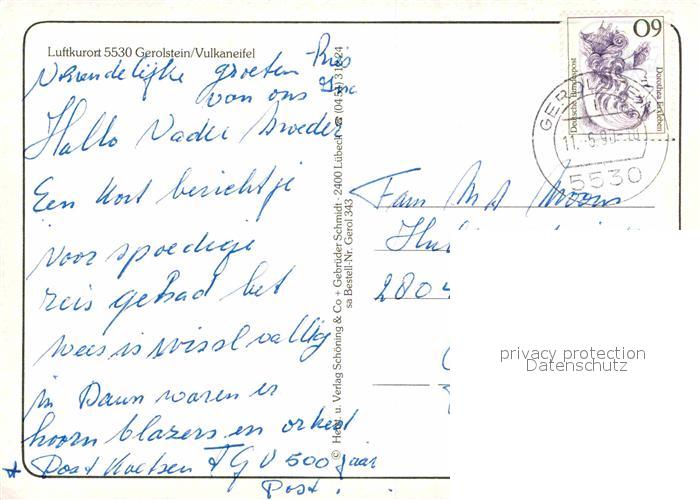 Luftkurort 5530 Gerolstein/Vulkaneifel
Vriendelijke groeten
van ons
Hallo Vader Moeder
Een kort berichtje
voor spoedige
reis gehad het
weer is wisselvallig
in Daun waren er
hoorn blazers en orkest
Post Koetsen TGV 500 jaar
Post.
© Herst. u. Verlag Schöning & Co + Gebrüder Schmidt · 2400 Lübeck ☎ (0451) 31
sa Bestell-Nr. Gerol 343
60
Deutsche Bundespost
Dorothea Erxleben
GEROLSTEIN
11.-5.90
5530
Fam
280
privacy protection
Datenschutz